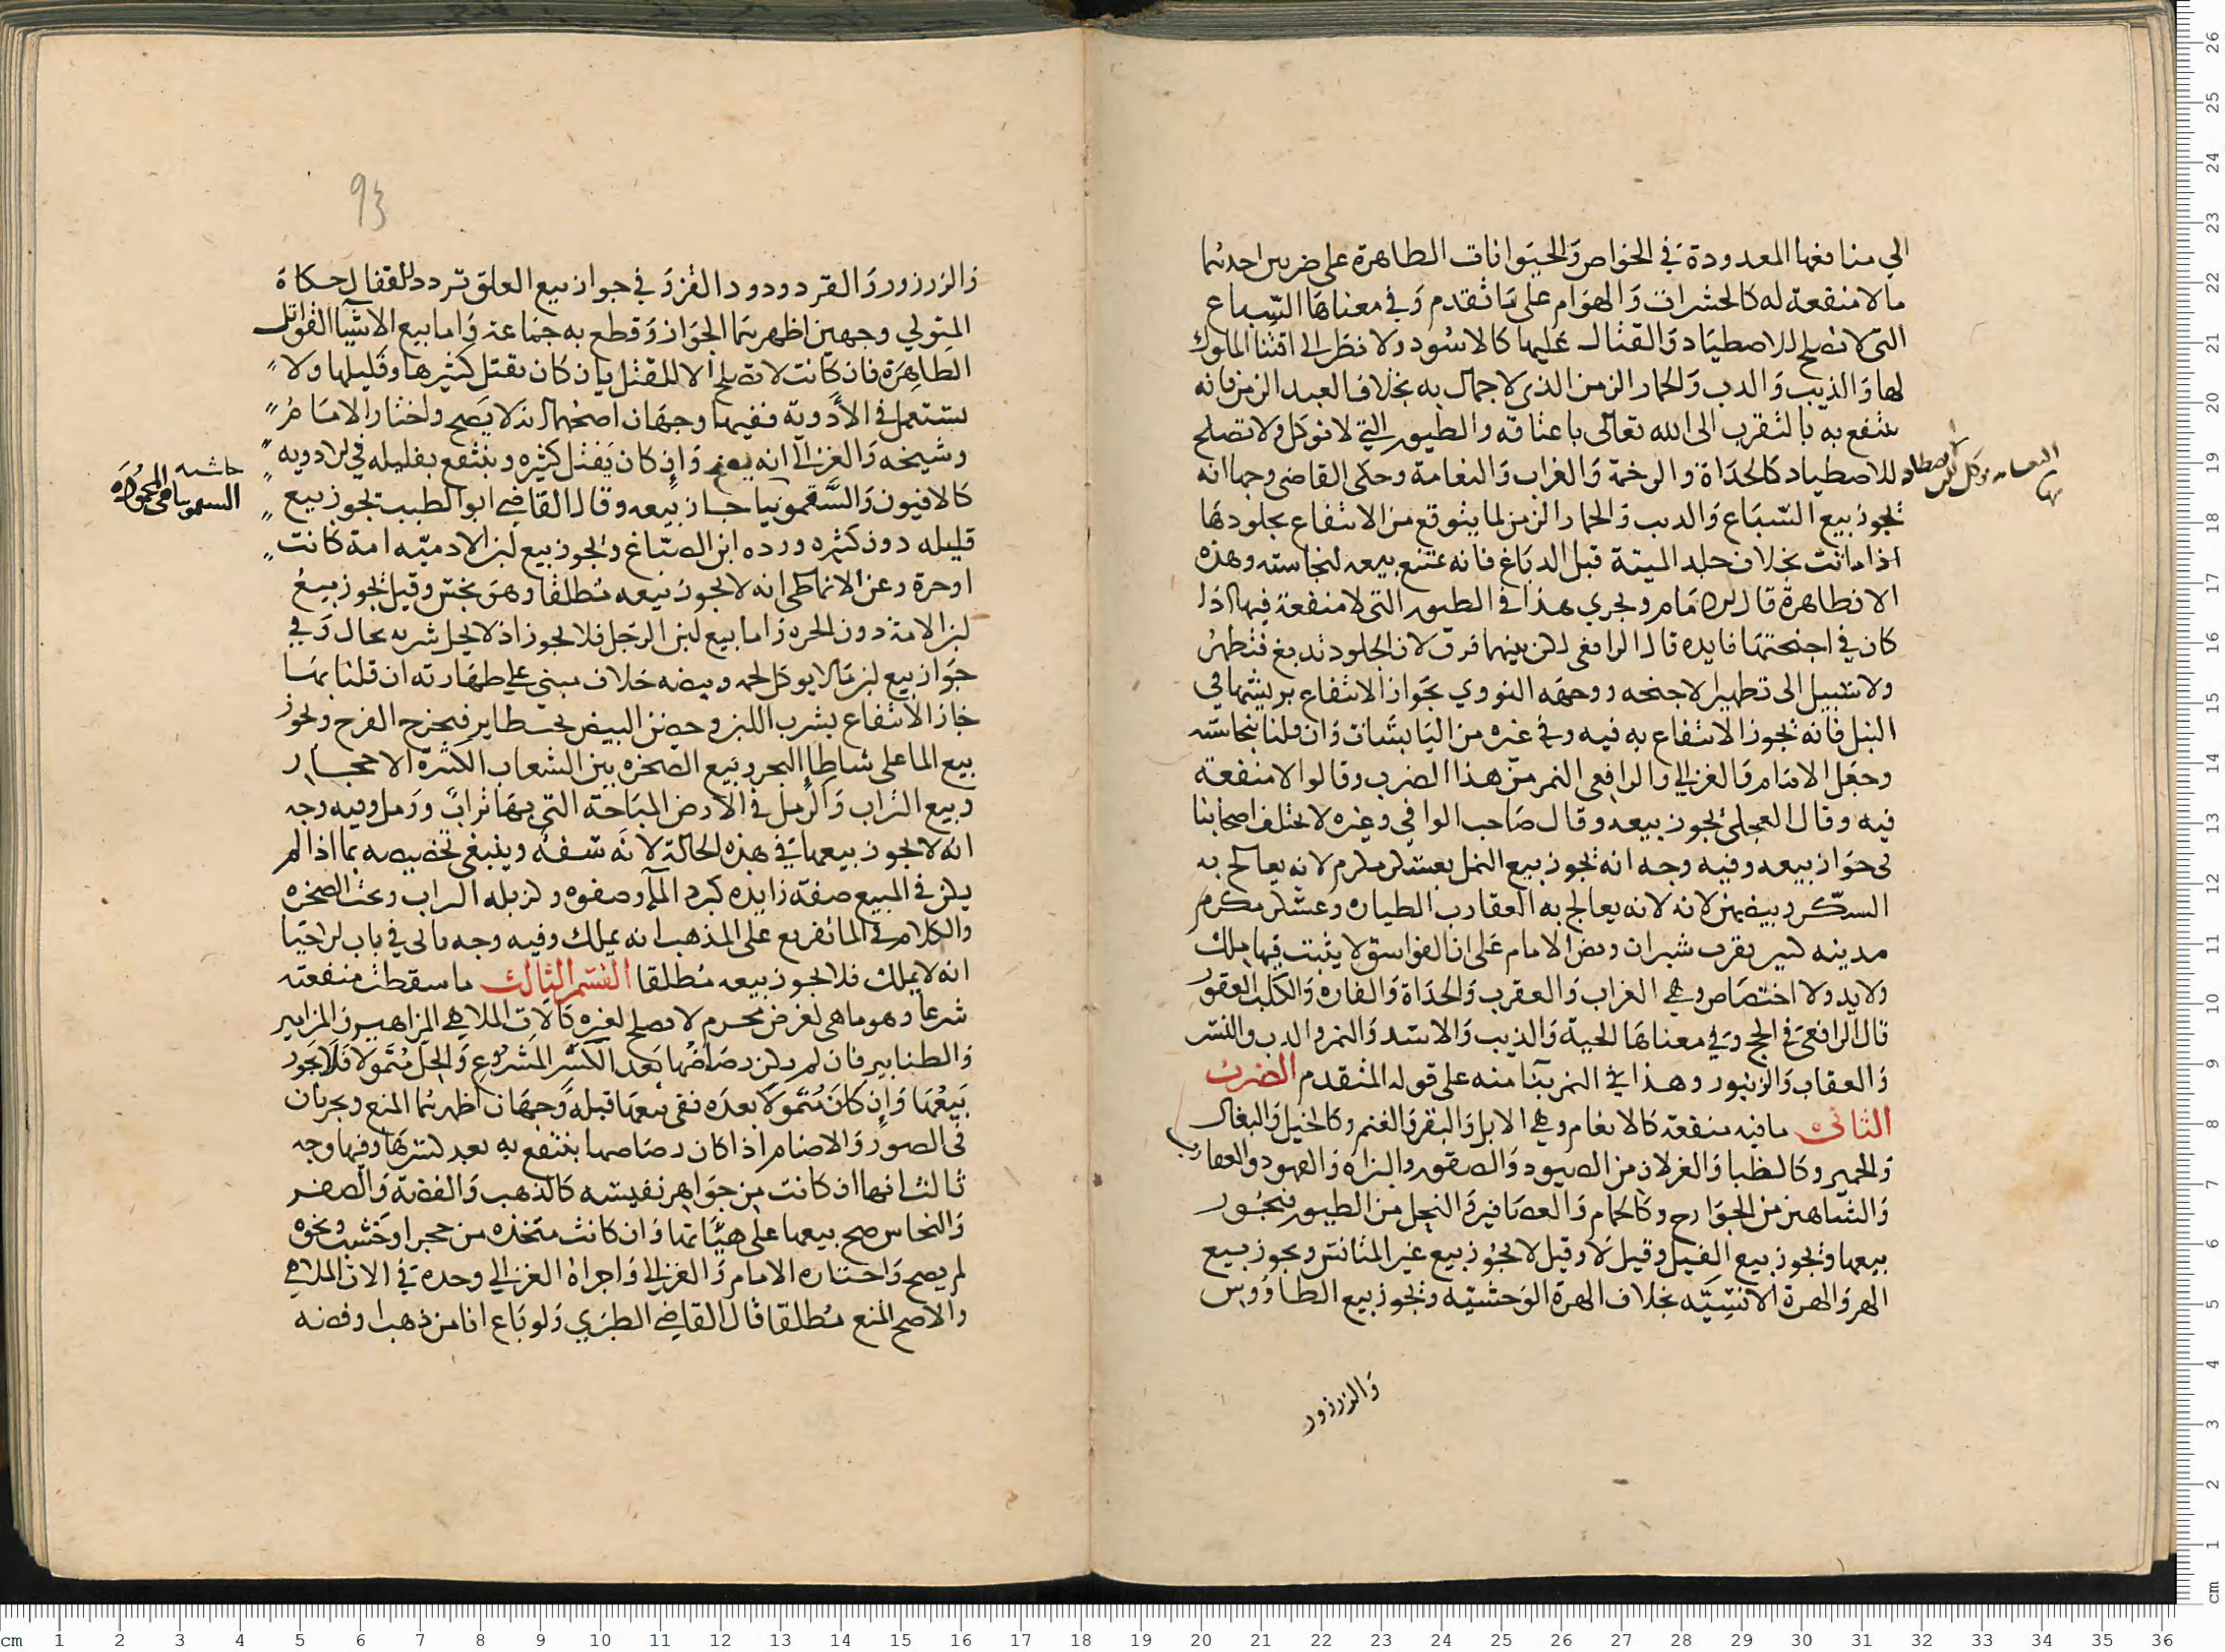 الي منافعها المعدودة في الخواص والحيوانات الطاهرة على ضربين احدهما
ما لا منفعة له كالحشرات والهوام على ما تقدم وفي معناها السباع
التي لا تصلح للاصطياد والقتال عليها كالاسود ولا نظر الى اقتنا الملوك
لها والذيب والدب والحمار الزمن الذي لا جمال به بخلاف العبد الزمن فانه
ينتفع به بالتقرب الى الله تعالى باعتاقه والطيور التي لا توكل ولا تصلح
للاصطياد كالحداة والرخمة والغراب والنعامة وحكى القاضي وجها انه
يجوز بيع السباع والدب والحمار الزمن لما يتوقع من الانتفاع بجلودها
اذا ماتت بخلاف جلد الميتة قبل الدباغ فانه يمتنع بيعه لنجاسته وهذه
الان طاهرة قال الامام ويجري هذا في الطيور التي لا منفعة فيها اذا
كان في اجنحتها فايده قال الرافعي لكن بينهما فرق لان الجلود تدبغ فتطهر
ولا سبيل الى تطهير الاجنحه ووجهه النووي بجواز الانتفاع بريشها في
النبل فانه يجوز الانتفاع به فيه وفي غيره من اليابسات وان قلنا بنجاسته
وجعل الامام والغزالي والرافعي النمر من هذا الضرب وقالوا لا منفعة
فيه وقال العجلي يجوز بيعه وقال صاحب الوافي وغيره لا يختلف اصحابنا
في جواز بيعه وفيه وجه انه يجوز بيع النمل بعسكر مكرم لانه يعالج به
السكر وبنصيبين لانه لانه يعالج به العقارب الطياره وعسكر مكرم
مدينه كبير بقرب شيراز ونص الامام على ان الفواسق لا يثبت فيها ملك
ولا يد ولا اختصاص وهي الغراب والعقرب والحداة والفاره والكلب العقور
قال الرافعي في الحج وفي معناها الحية والذيب والاسد والنمر والدب والنسر
والعقاب والزنبور وهذا في النمر بنا منه على قوله المتقدم الضرب
الثاني ما فيه منفعة كالانعام وهي الابل والبقر والغنم وكالخيل والبغال
والحمير وكالظبا والغزلان من الصيود والصقور والبزاه والفهود والعقاب
والشاهين من الجوارح وكالحمام والعصافير والنحل من الطيور فيجوز
بيعها ويجوز بيع الفيل وقيل لا وقيل لا يجوز بيع غير المتانس ويجوز بيع
الهر والهرة الانسيه بخلاف الهرة الوحشيه ويجوز بيع الطاووس
والزرزور
93
والزرزور والقرد ودود القز وفي جواز بيع العلق تردد للقفال حكاه
المتولي وجهين اظهرهما الجواز وقطع به جماعة واما بيع الاشيا القواتل
الطاهرة فان كانت لا تصلح الا للقتل بان كان يقتل كثيرها وقليلها ولا
تستعمل في الادوية ففيها وجهان اصحهما انه لا يصح واختار الامام
وشيخه والغزالي انه يصح وان كان يقتل كثيره وينتفع بقليله في الادويه
كالافيون والسقمونيا جاز بيعه وقال القاضي ابو الطيب يجوز بيع
قليله دون كثيره ورده ابن الصباغ ويجوز بيع لبن الادميه امة كانت
او حرة وعن الانماطي انه لا يجوز بيعه مطلقا وهو نجس وقيل يجوز بيع
لبن الامة دون الحره واما بيع لبن الرجل فلا يجوز اذ لا يحل شربه بحال وفي
جواز بيع لبن ما لا يوكل لحمه وبيضه خلاف مبني على طهارته ان قلنا بها
جاز الانتفاع بشرب اللبن وحضن البيض تحت طاير فيخرج الفرخ ويجوز
بيع الما على شاطئ البحر وبيع الصخره بين الشعاب الكثيرة الاحجار
وبيع التراب والرمل في الارض المباحة التي بها تراب ورمل وفيه وجه
انه لا يجوز بيعها في هذه الحالة لانه سفه وينبغي تخصيصه بما اذا لم
يكن في المبيع صفة زايده كبرد الما وصفوه وكزبله التراب ونحت الصخره
والكلام في الما تفريع على المذهب انه يملك وفيه وجه ياتي في باب الاحيا
انه لا يملك فلا يجوز بيعه مطلقا القسم الثالث ما سقطت منفعته
شرعا وهو ما هي لغرض محرم لا يصلح لغيره كالات الملاهي المزاهير والمزامير
والطنابير فان لم يكن رضاضها بعد الكسر المشروع والحل متمولا فلا يجوز
بيعها وان كان متمولا بعده ففي بيعها قبله وجهان اظهرهما المنع ويجريان
في الصور والاصنام اذا كان رضاضها ينتفع به بعد كسرها وفيها وجه
ثالث انها ان كانت من جواهر نفيسه كالذهب والفضة والصفر
والنحاس صح بيعها على هياتها وان كانت متخذه من حجر او خشب ونحوه
لم يصح واختاره الامام والغزالي واجراه الغزالي وحده في الات الملاهي
والاصح المنع مطلقا قال القاضي الطبري ولو باع انا من ذهب او فضه
حاشيه
السقمونيا هي المحموده